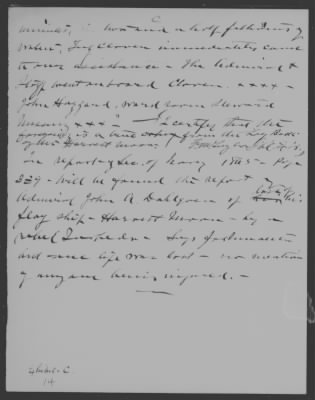 minutes, in two and a half fathoms of
water, Tug Clover immediately came
to our assistance - The Admiral &
Staff went on board Clover. x x x x -
John Haggard, ward room Steward
missing x x x - I certify that the
foregoing is a true copy from the Log Book
of the Harvest Moon,
In report of Sec. of Navy 1865 - Page
229 - Will be found the report of
Admiral John A Dahlgren of
flag ship - Harvest Moon - by a
rebel Torpedo - Says Instantaneous
and one life was lost - no mention
of any one being injured. -
Exhibit - C.
14